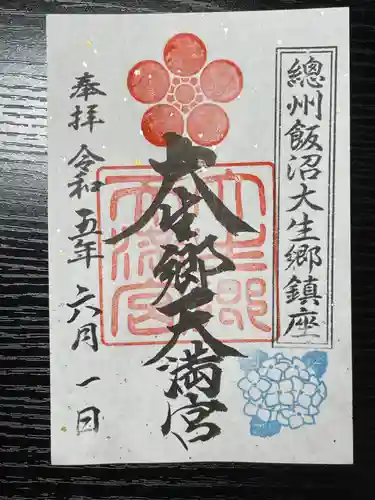 總州飯沼大生郷鎮座
大生郷天満宮
奉拝 令和五年 六月 一日